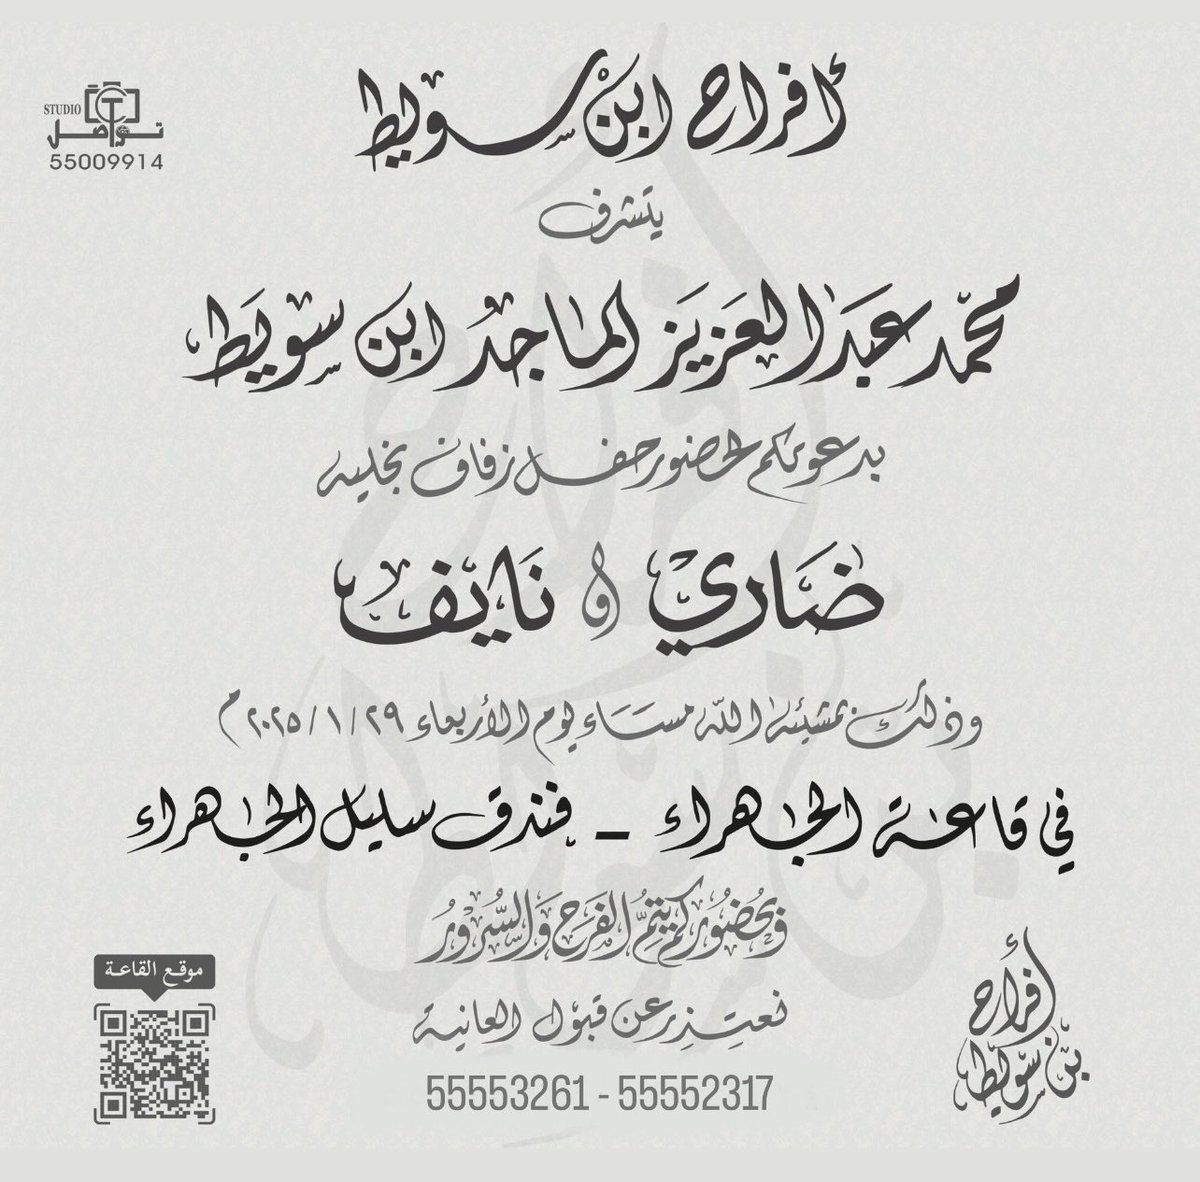 أفراح ابن سويط
STUDIO
تواصل
55009914
يتشرف
محمد عبدالعزيز الماجد ابن سويط
بدعوتكم لحضور حفل زفاف نجليه
ضاري و نايف
وذلك بمشيئة الله مساء يوم الأربعاء ٢٠٢٥/١/٢٩م
في قاعة الجهراء - فندق سليل الجهراء
وَبحُضُوركم يَتِمُّ الفَرَح وَالسُّرُورُ
نعتذر عن قبول العانية
55553261 - 55552317
موقع القاعة
أفراح
بن سويط